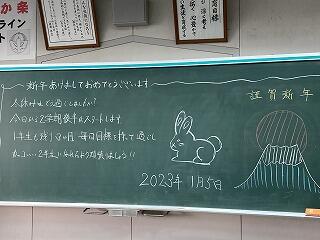 か条
ライン
ット
目標
～新年あけましておめでとうございます～
冬休みはどう過ごしましたか?
今日から2学期後半がスタートします
1年生も残り3ヶ月 毎日目標を持って過ごし
カッコいい2年生になれるよう頑張りましょう!!
謹賀新年
2023年 1月5日